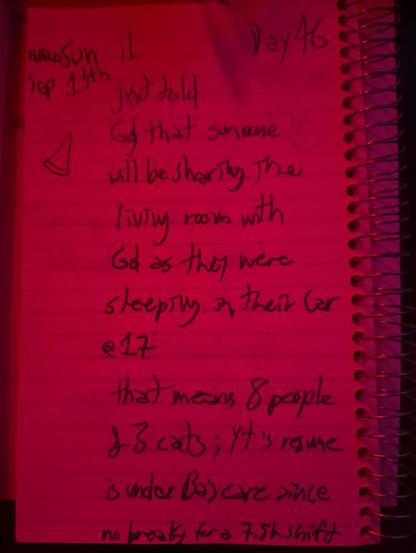 Sun il Day 46
Sep 13th just told
Gd that someone
will be sharing the
living room with
Gd as they were
sleeping in their car
@17
that means 8 people
& 3 cats; Yt's resume
is under Bay care since
no breaks for a 7.5h shift